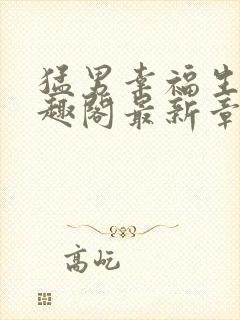 猛男幸福生
趣阁最新章
高屹